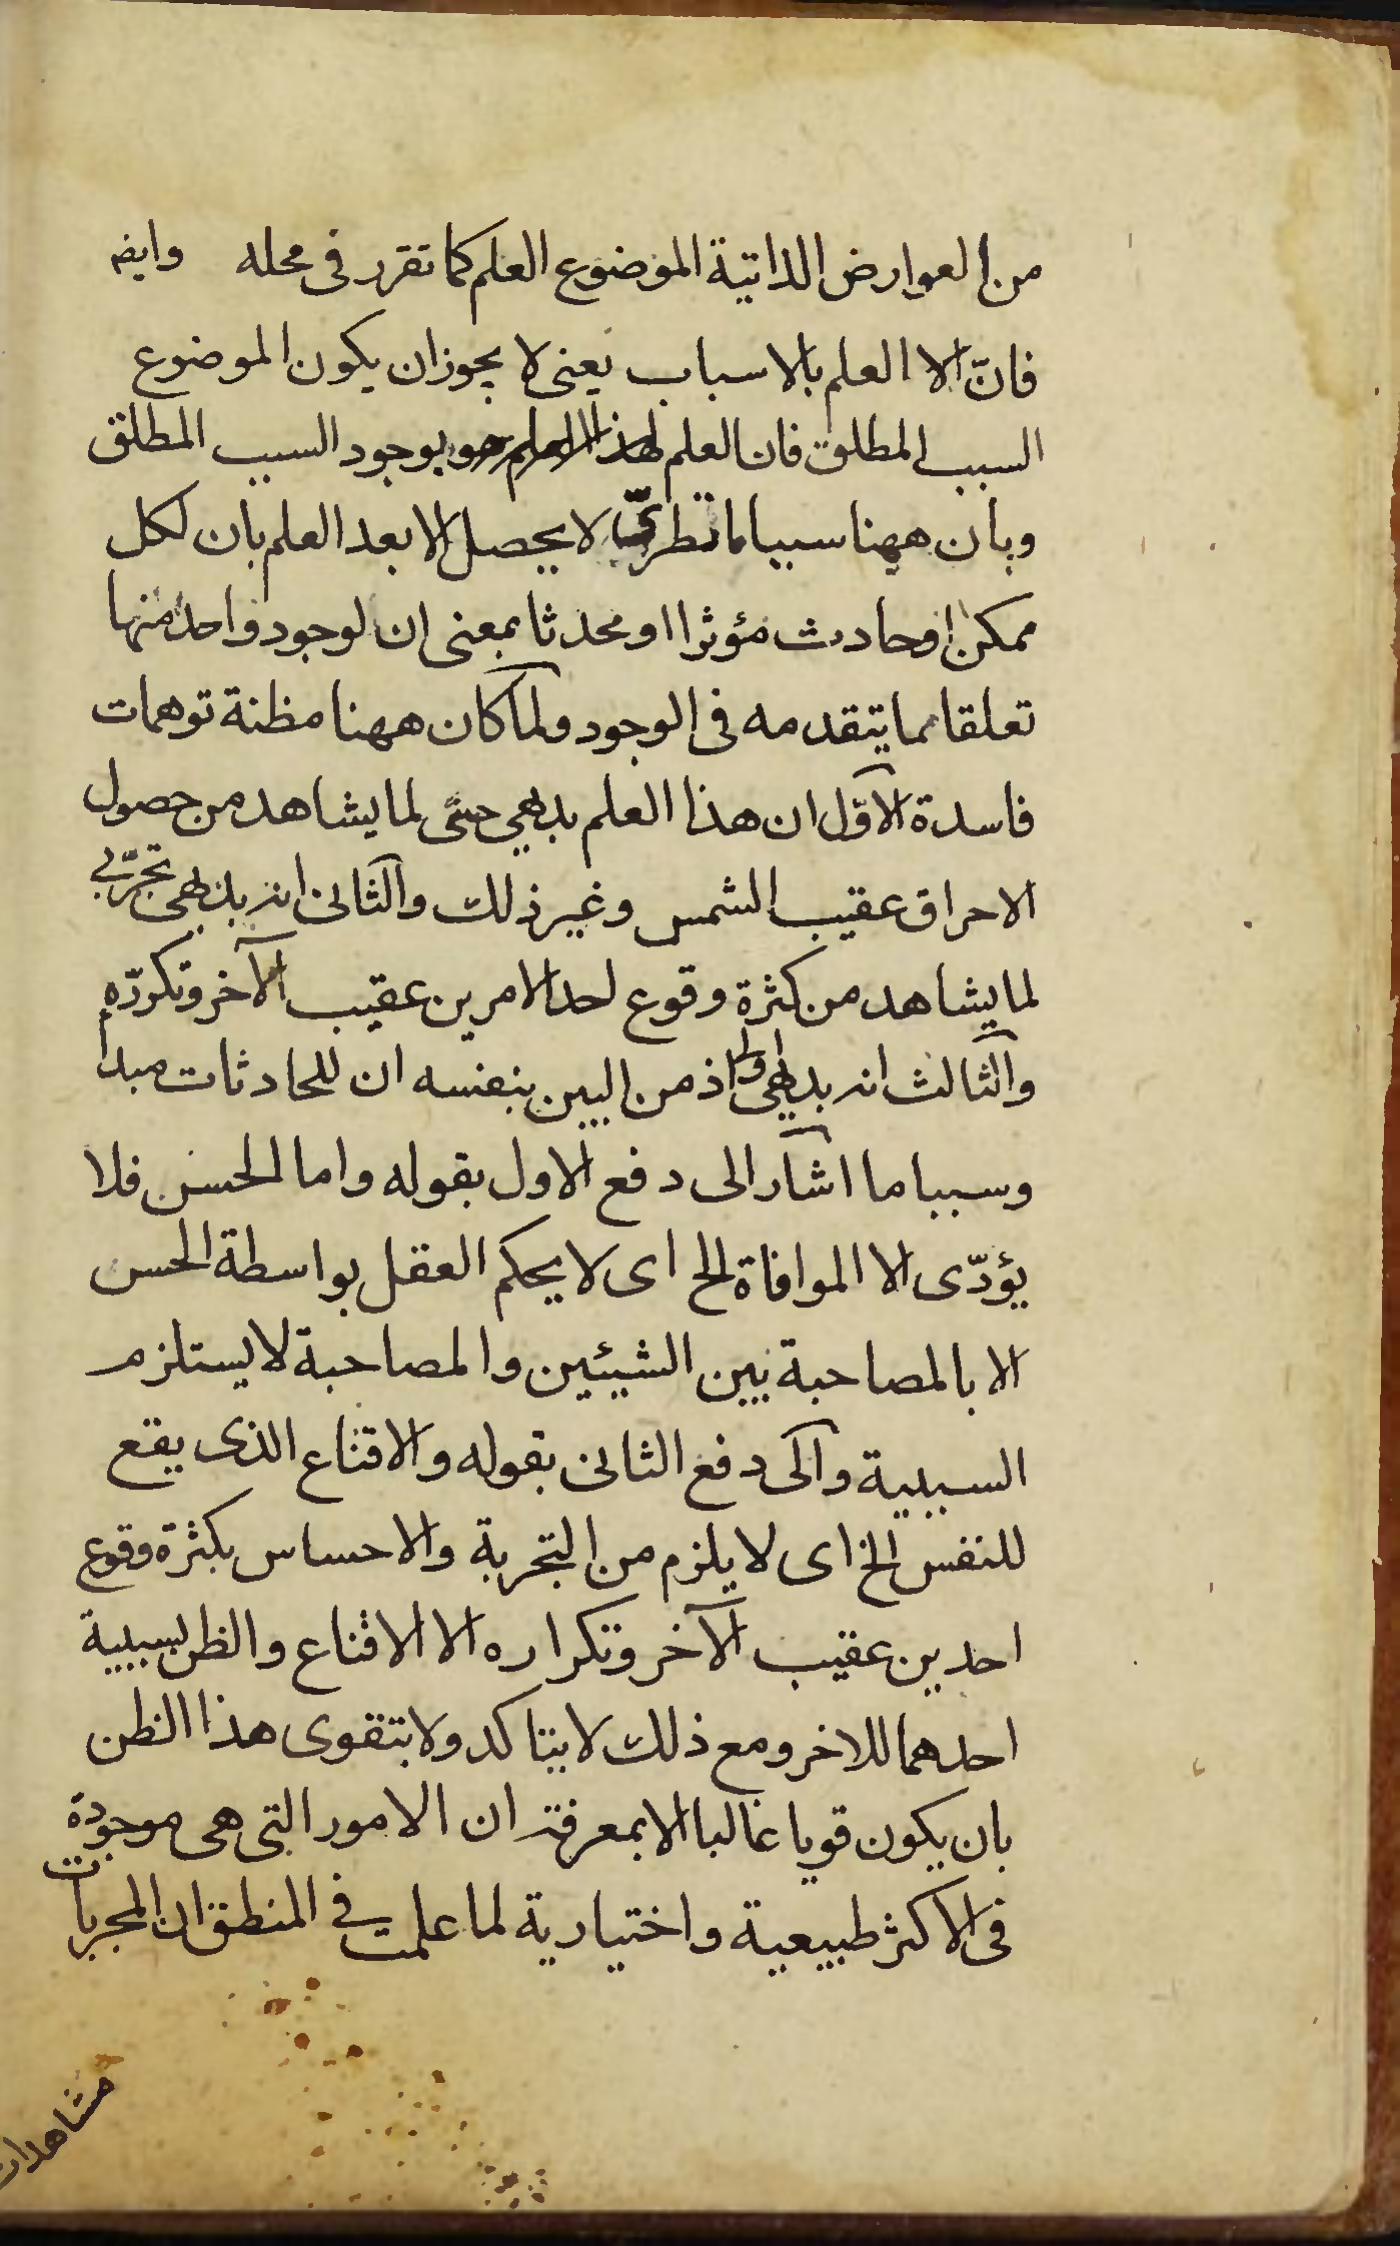 من العوارض الذاتية الموضوع العلم كما تقرر فى محله وايضـ
فانّ الا العلم بالاسباب يعنى لا يجوز ان يكون الموضوع
السبب المطلق فان العلم بوجود السبب المطلق
وبان ههنا سببا ما نظرىّ لا يحصل الا بعد العلم بان لكل
ممكن او حادث مؤثرا او محدثا بمعنى ان لوجود واحد منها
تعلقا بما يتقدمه فى الوجود ولما كان ههنا مظنة توهمات
فاسدة الاوّل ان هذا العلم بدهي حسّى لما يشاهد من حصول
الاحراق عقيب الشمس وغير ذلك والثانى انه بدهى تجرّبى
لما يشاهد من كثرة وقوع احد الامرين عقيب الآخر وتكرّره
والثالث انه بدهى اولى اذ من البين بنفسه ان للحادثات مبدأ
وسببا ما اشار الى دفع الاول بقوله واما الحسن فلا
يؤدّى الا الموافاة الخ اى لا يحكم العقل بواسطة الحس
الا بالمصاحبة بين الشيئين والمصاحبة لا يستلزم
السببية والى دفع الثانى بقوله والاقناع الذى يقع
للنفس الخ اى لا يلزم من التجربة والاحساس بكثرة وقوع
احدين عقيب الآخر وتكراره الا الاقناع والظن بسببية
احدهما للاخر ومع ذلك لا يتاكد ولا يتقوى هذا الظن
بان يكون قويا غالبا الا بمعرفة ان الامور التى هى موجودة
فى الاكثر طبيعية واختيارية لما علمت فى المنطق ان المجربات
مشاهدات